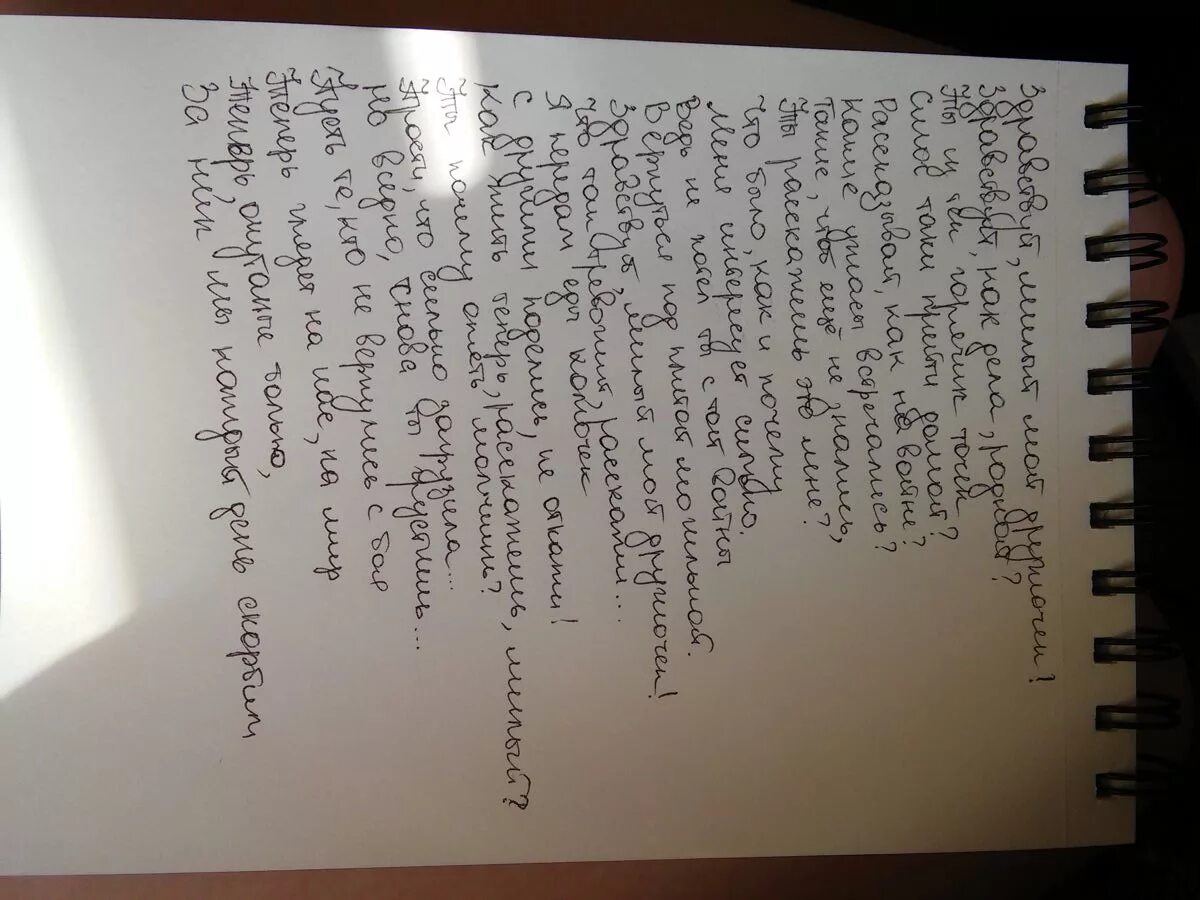 Здравствуй, милый мой дружочек!
Здравствуй, как дела, родной?
Ты из тех горячих точек
Силой таки прийти домой?
Рассказывай, как на войне?
Какие ужасы встречались?
Такие, что ещё не знались,
Ты расскажешь это мне?
Что было, как и почему
Меня интересует сильно.
Ведь не хотел ты с той войны
Вернуться под плитой могильной.
Здравствуй, милый мой дружочек!
Что там тревожит, расскажи...
Я передам еды кулёчек
С другими поделись, не откажи!
Как жить теперь, расскажешь, милый?
Ты почему опять молчишь?
Прости, что сильно загрузила...
Но всё равно, снова ты грустишь...
Пусть те, кто не вернулись с боя
Теперь глядят на небе, на мир
Теперь, окутанные болью,
За ними мы каждый день скорбим